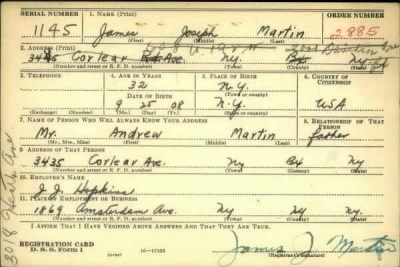 SERIAL NUMBER 1. NAME (Print) ORDER NUMBER
1145 James Joseph Martin 2885
(First) (Middle) (Last)
2. ADDRESS (Print)
Corlear Ave. Ny Bx Ny.
(Number and street or R. F. D. number) (Town) (County) (State)
3. TELEPHONE 4. AGE IN YEARS 5. PLACE OF BIRTH 6. COUNTRY OF CITIZENSHIP
32 N.Y.
(Town or county)
DATE OF BIRTH
9 25 08 N.Y. USA
(Exchange) (Number) (Mo.) (Day) (Yr.) (State or country)
7. NAME OF PERSON WHO WILL ALWAYS KNOW YOUR ADDRESS 8. RELATIONSHIP OF THAT PERSON
Mr. Andrew Martin father
(Mr., Mrs., Miss) (First) (Middle) (Last)
9. ADDRESS OF THAT PERSON
3435 Corlear Ave. Ny Bx Ny
(Number and street or R. F. D. number) (Town) (County) (State)
10. EMPLOYER'S NAME
J. J. Hopkins
11. PLACE OF EMPLOYMENT OR BUSINESS
1869 Amsterdam Ave. Ny Ny. Ny.
(Number and street or R. F. D. number) (Town) (County) (State)
I AFFIRM THAT I HAVE VERIFIED ABOVE ANSWERS AND THAT THEY ARE TRUE.
REGISTRATION CARD
D. S. S. Form 1 (over) James J Martin
(Registrant's signature)